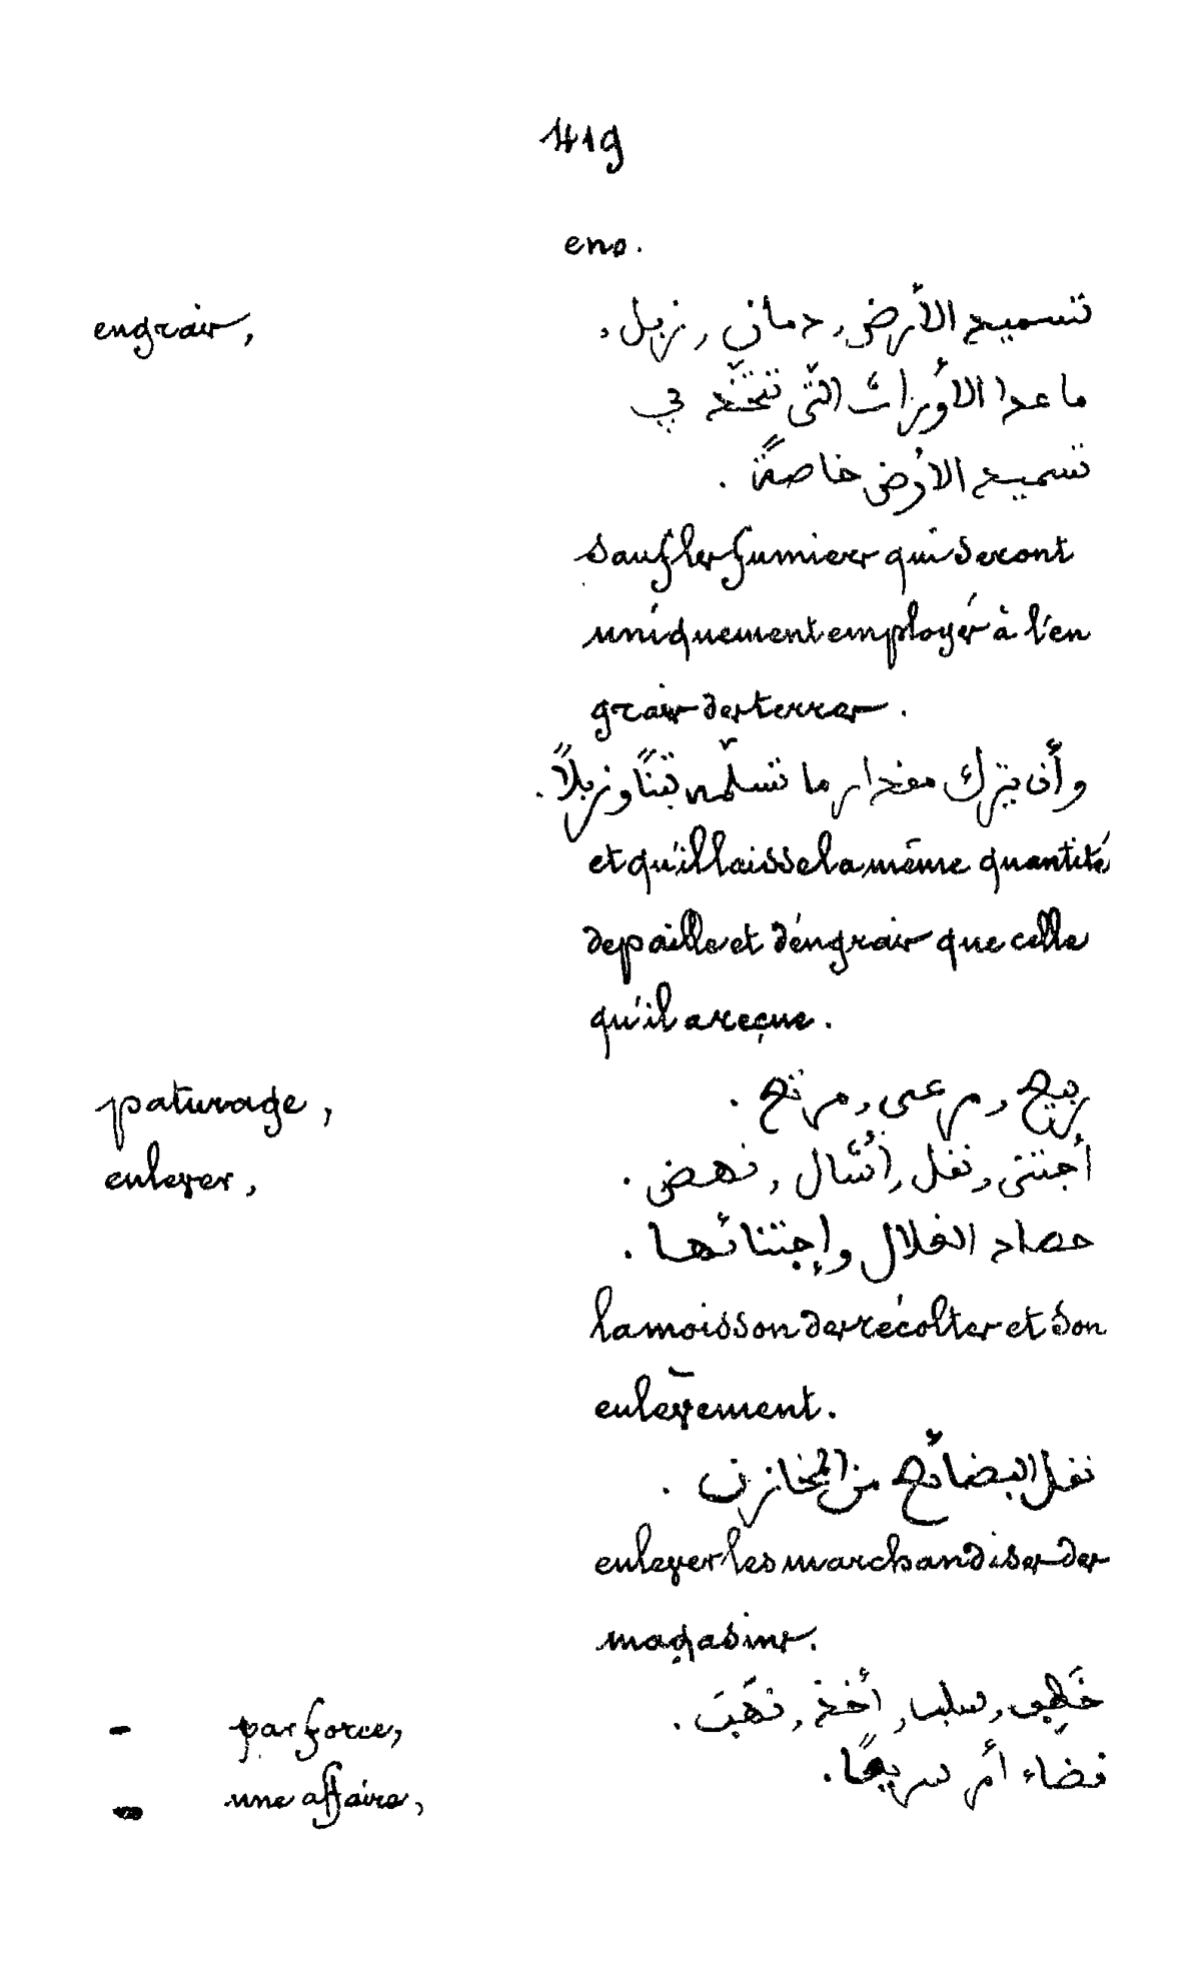 419
eno.
engrais, تسميد الأرض, دمان, زبل,
ما عدا الأوراث التّى تتخّذ في
تسميد الأرض خاصةً.
sauf les fumiers qui seront
uniquement employés à l'en
grais des terres.
وأن يترك مقدار ما تسلّمه تبنًا وزبلاً.
et qu'il laisse la même quantité
de paille et d'engrais que celle
qu'il a reçue.
paturage, ربيع, مرعى, مرتع.
enlever, أجتنى, نقل, أنشال, نهض.
حصاد الغلال وإجتنائها.
la moisson des récoltes et son
enlèvement.
نقل البضائع من المخازن.
enlever les marchandises des
magasins.
- par force, خَطِف, سلب, أخذ, نَهَبَ.
- une affaire, قضاء أمر سريعًا.